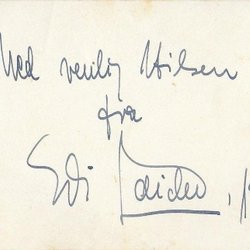 Med venlig Hilsen
fra
Edi Laider,